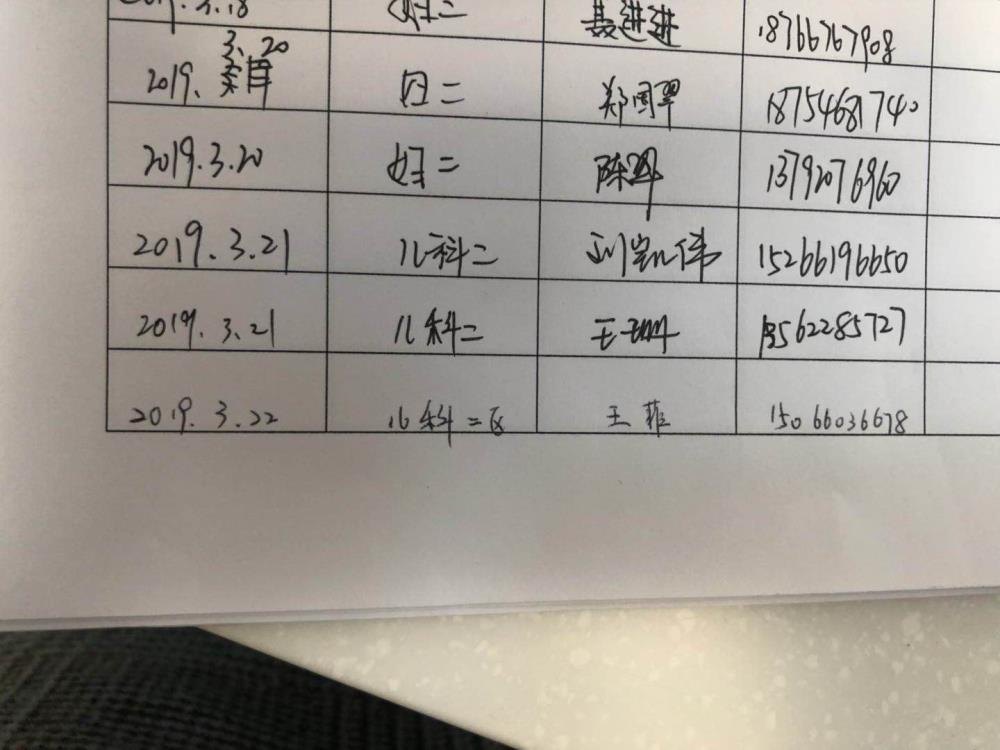 2019.3.18 妇二 聂进进 18766767908
3.20
2019. 内二 郑国翠 18754681740
2019.3.20 妇二 陈 13792076960
2019.3.21 儿科二 刘凯伟 15266196650
2019.3.21 儿科二 王 13562285727
2019.3.22 儿科二区 王菲 15066036678